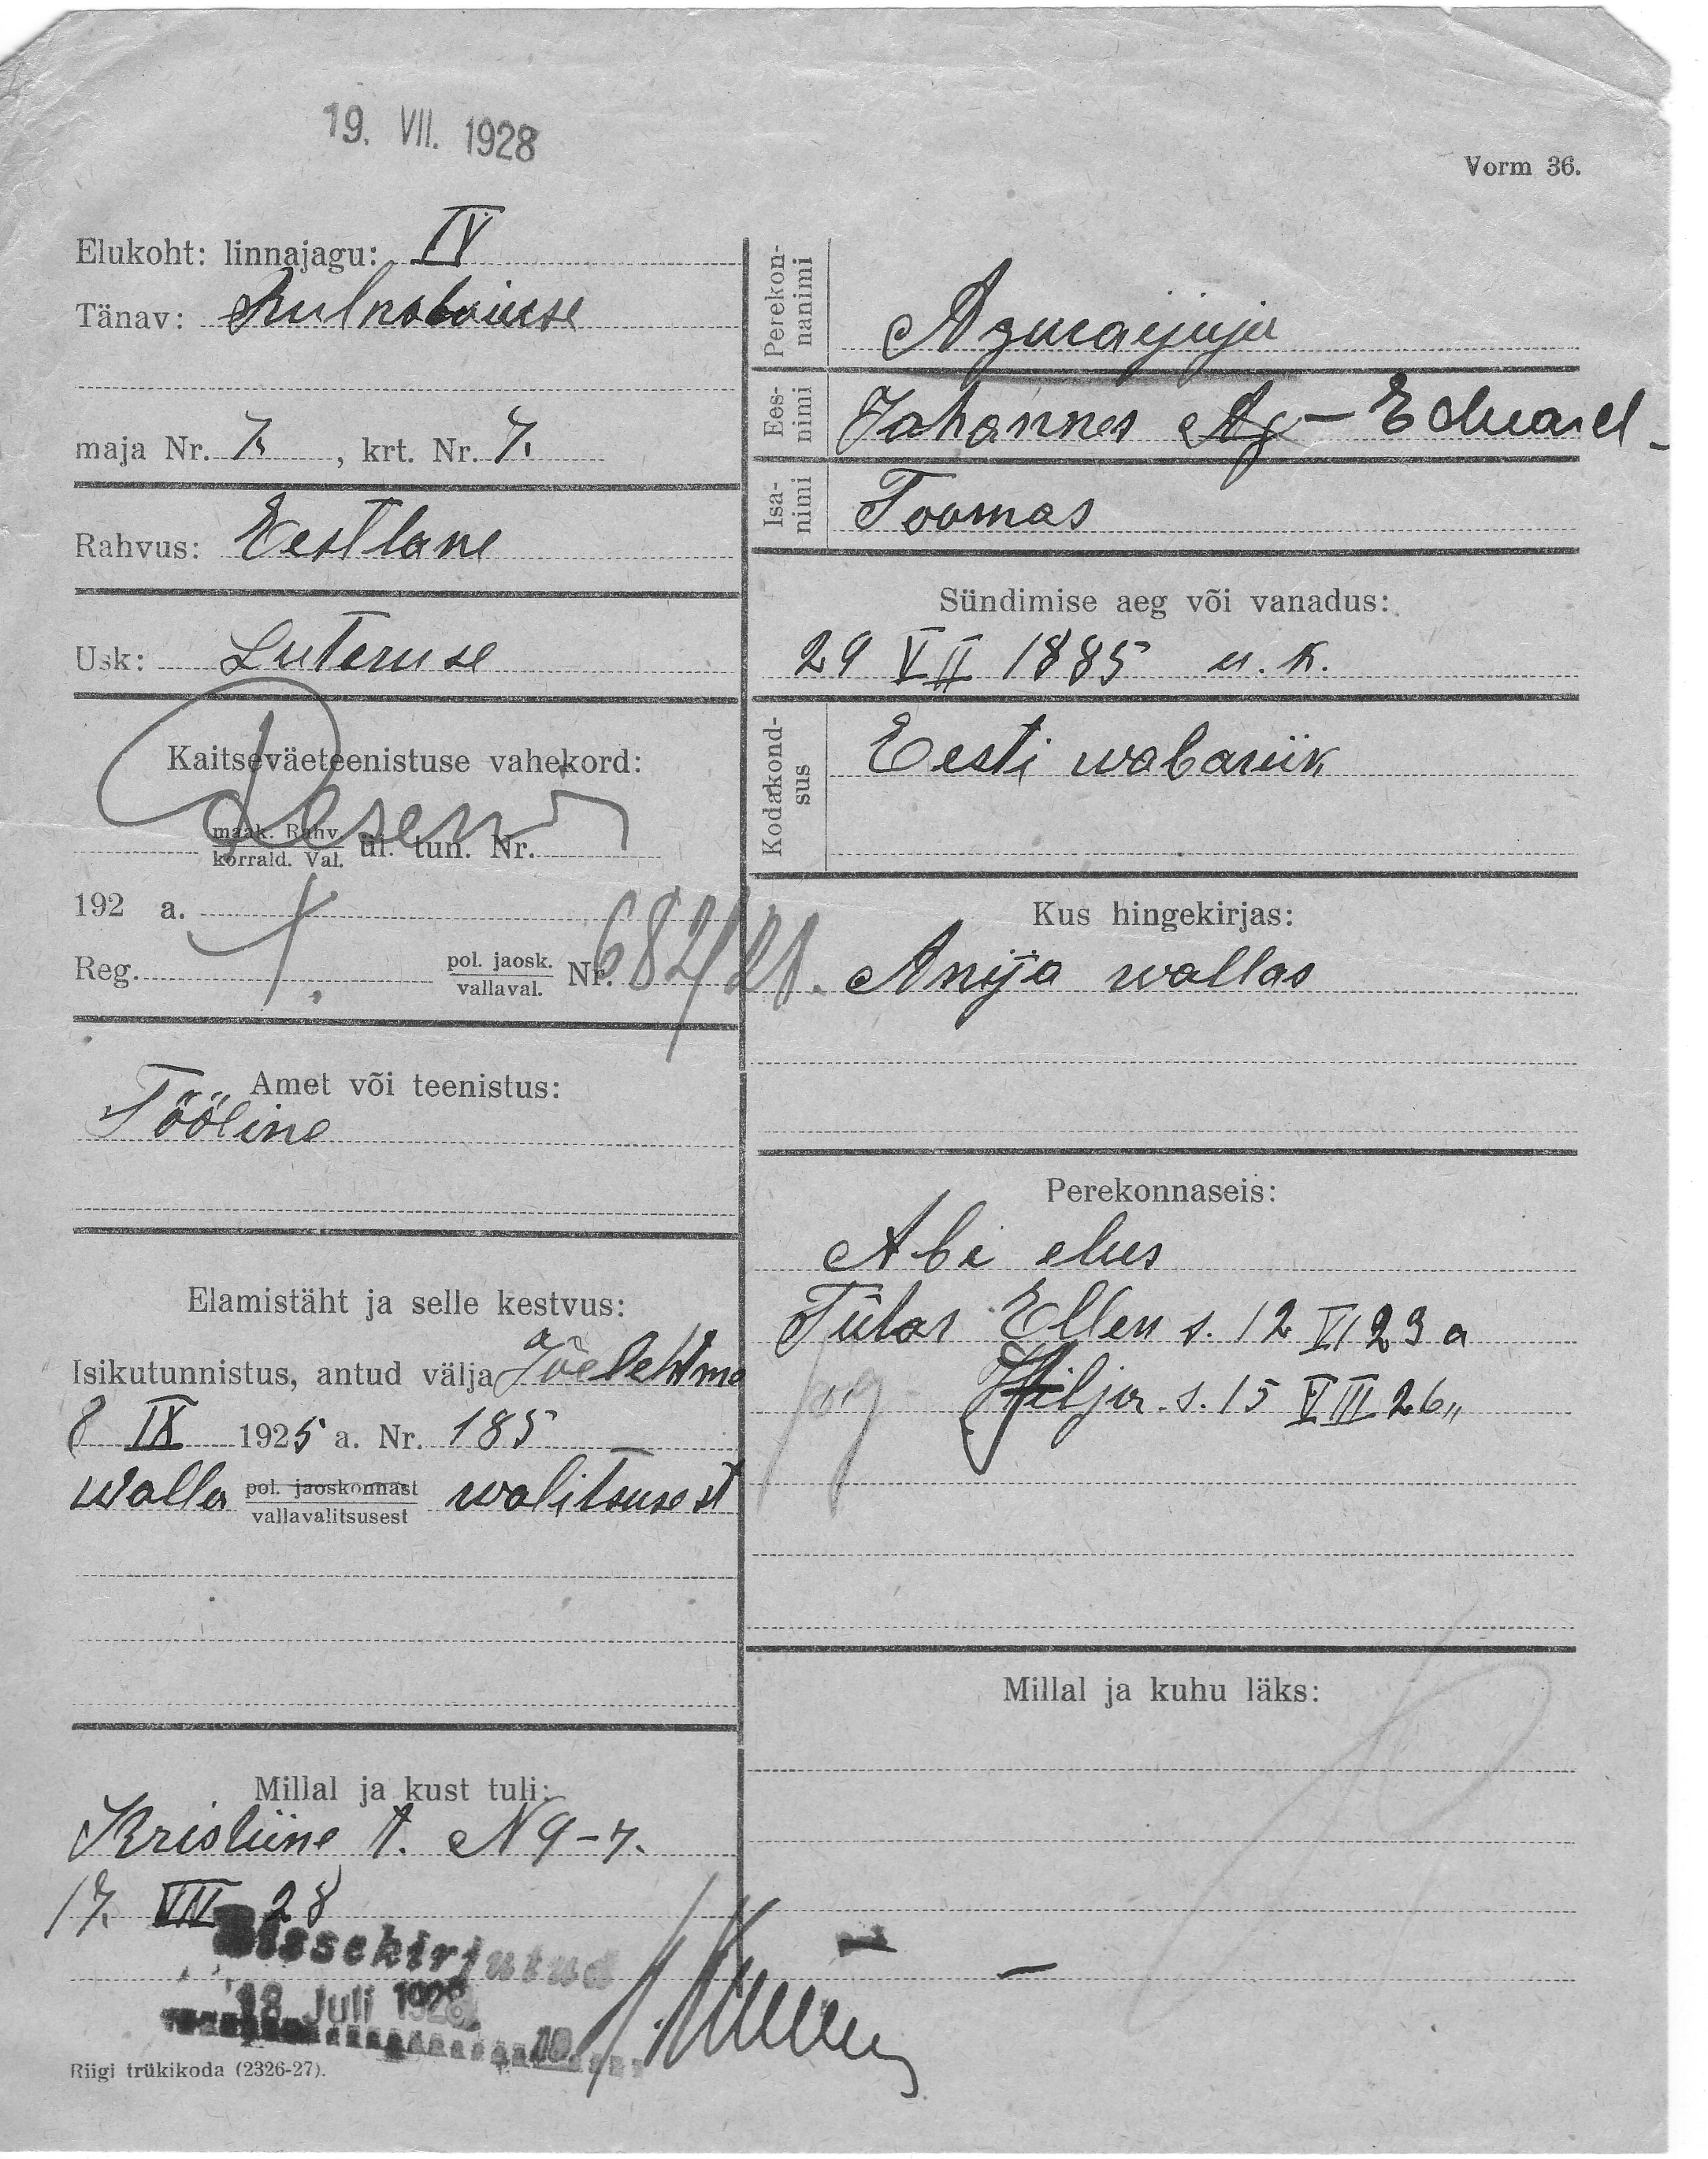 19. VII. 1928
Vorm 36.
Elukoht: linnajagu: IV
Tänav:
maja Nr. 7. , krt. Nr. 7.
Rahvus: Eestlane
Usk: Luteruse
Kaitseväeteenistuse vahekord:
Reserv
maak. Rahv.
korrald. Val. ül. tun. Nr.
192 a.
Reg. pol. jaosk.
vallaval. Nr. 682/21.
Amet või teenistus:
Tööline
Elamistäht ja selle kestvus:
Isikutunnistus, antud välja Jõelehtme
8 IX 1925 a. Nr. 185
Walla pol. jaoskonnast
vallavalitsusest walitsusest
Millal ja kust tuli:
Kristiine t. N 9-7.
17. VII 28
Sissekirjutud
18 Juli 1928
Riigi trükikoda (2326-27).
Perekon-
nanimi
Ees-
nimi Johannes Ag- Eduard -
Isa-
nimi Toomas
Sündimise aeg või vanadus:
29 VII 1885 u. k.
Kodakond-
sus Eesti wabariik
Kus hingekirjas:
Anija wallas
Perekonnaseis:
Abi elus
Tütar Ellen s. 12 VI 23 a
Hilja s. 15 VIII 26 „
Millal ja kuhu läks: